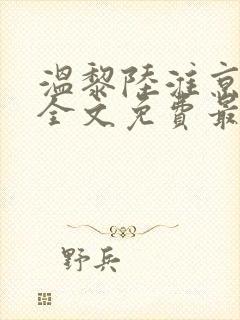 温黎陆淮京
全文免费最
野兵